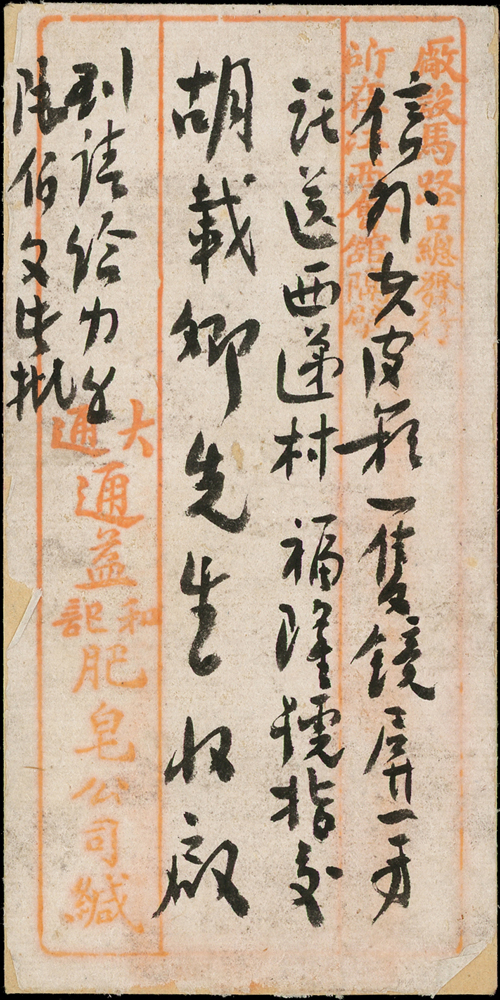 廠設馬路口總發行
所在江西會館隔壁
信外皮箱一隻鏡屏一方
託送西遞村 福隆號指交
胡載卿先生收啟
到請給力
伯文此批
大通
通益
和記
肥皂公司緘